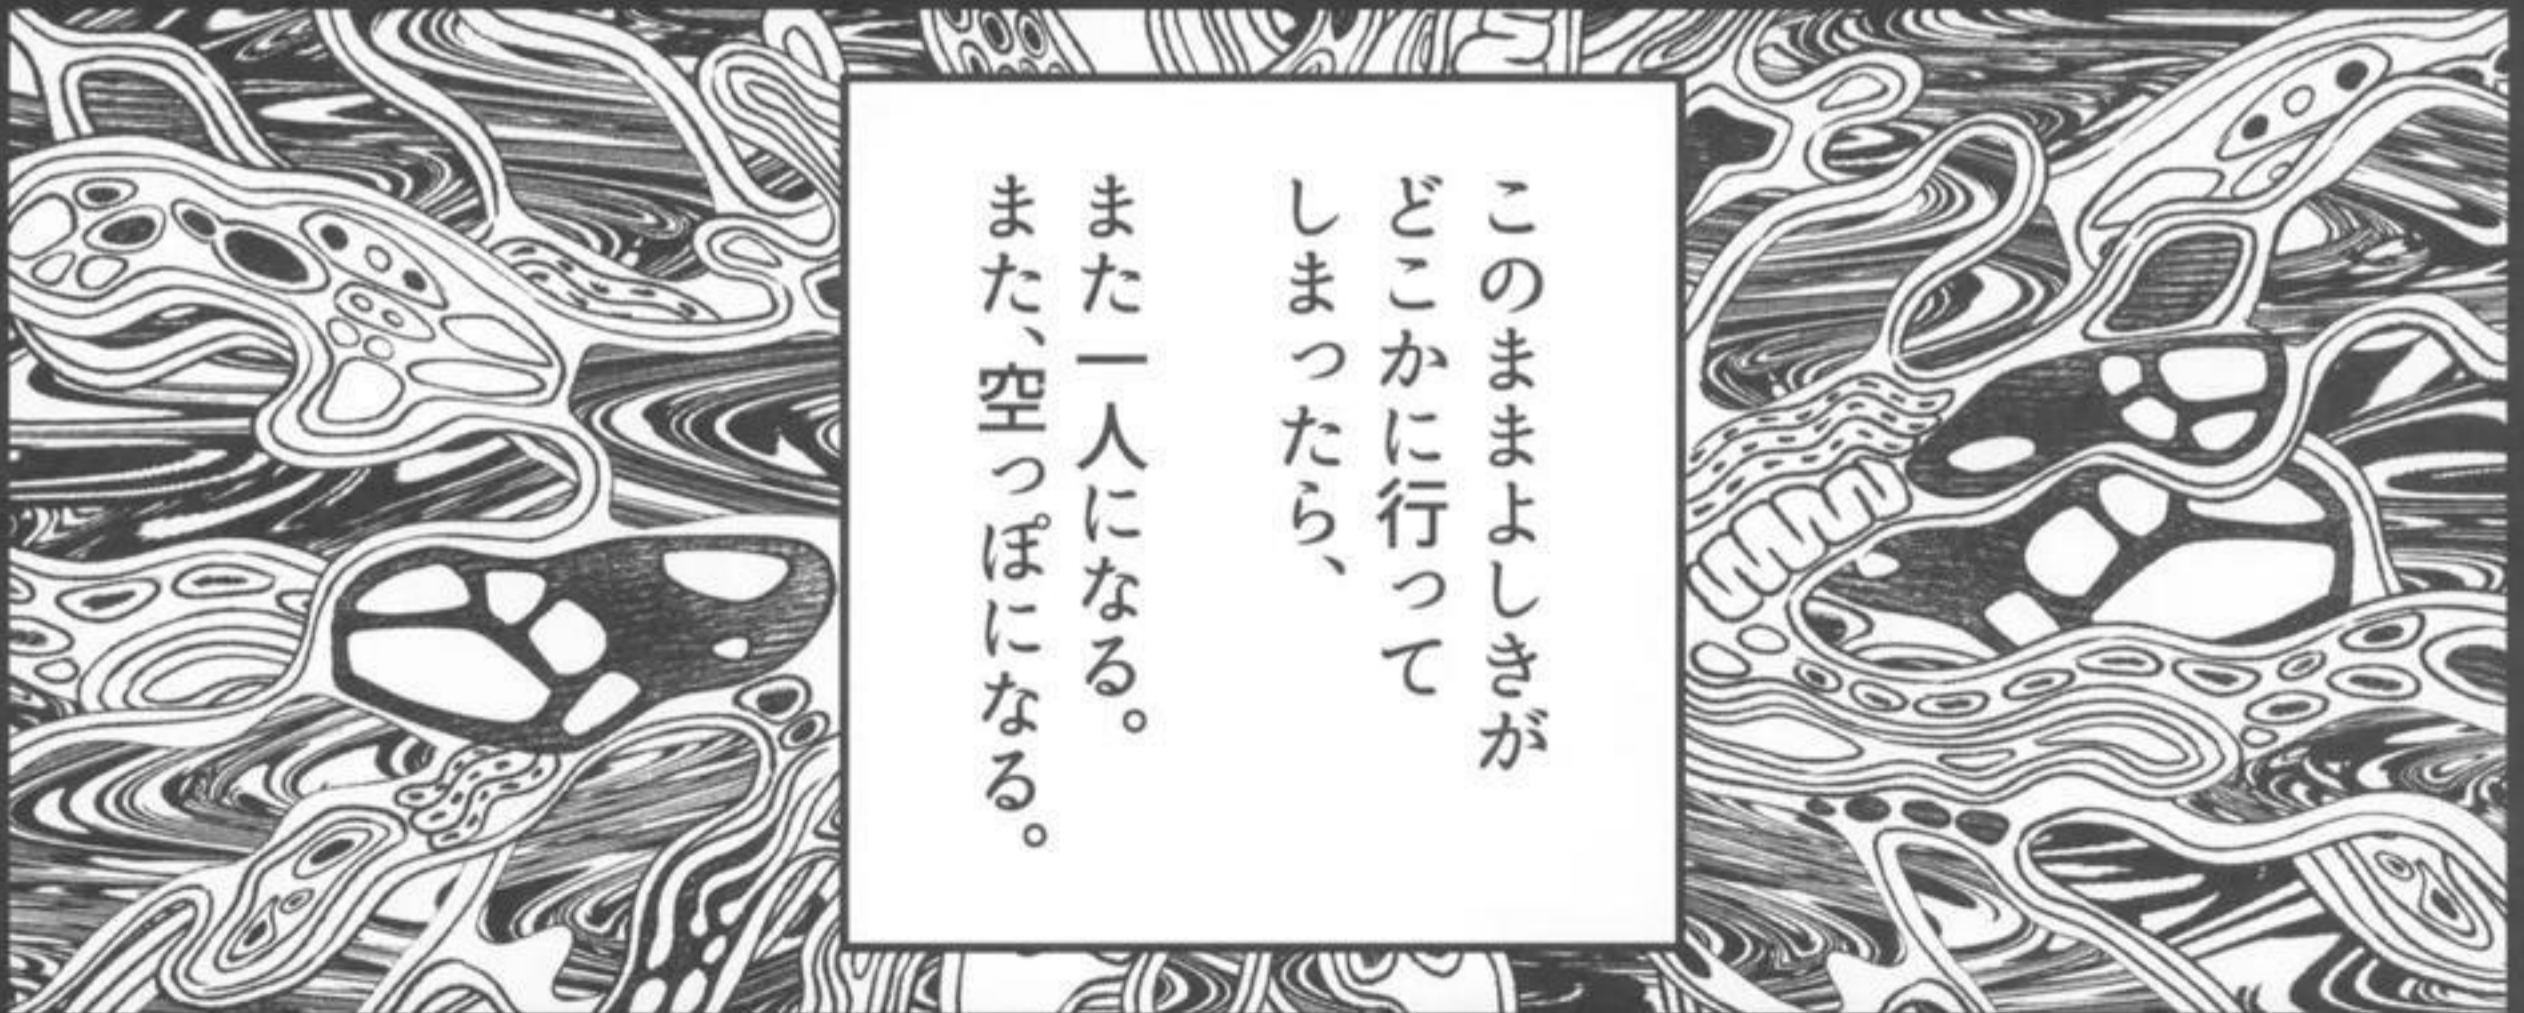 このままよしきが
どこかに行って
しまったら、
また一人になる。
また、空っぽになる。